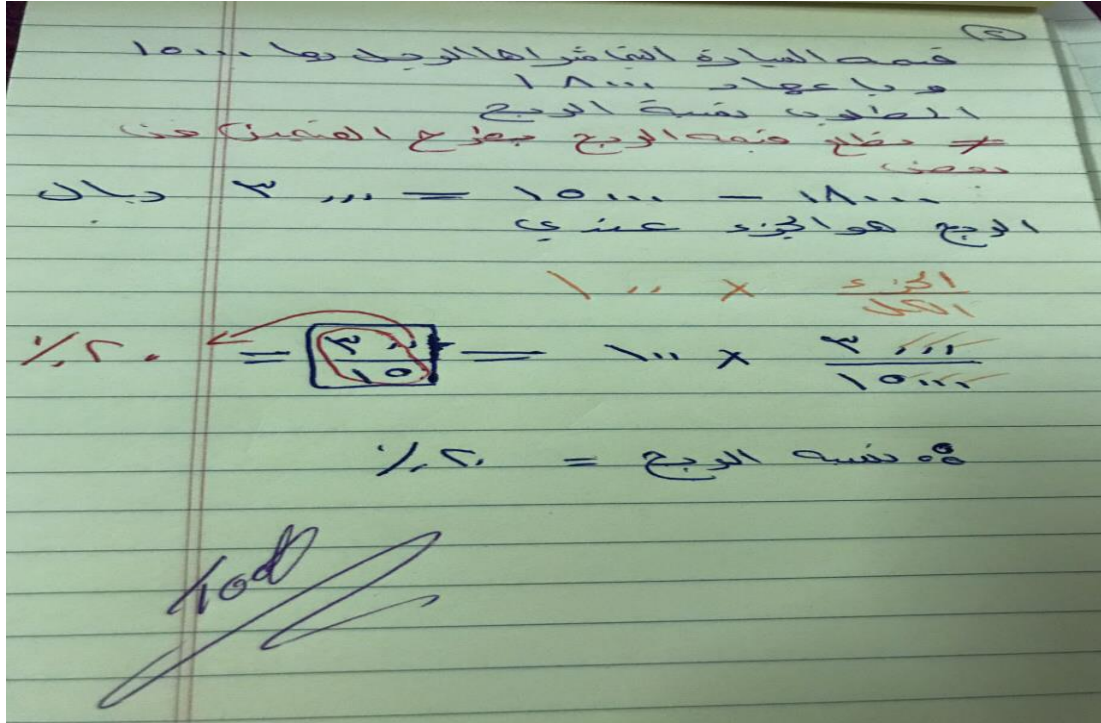 ٢
قيمه السيارة التي شراها الرجل بها ١٥٠٠٠
و باعها بـ ١٨٠٠٠
المطلوب نسبة الربح
≠ نطلع قيمه الربح بطرح القيمتين من
بعض
١٨٠٠٠ − ١٥٠٠٠ = ٣٠٠٠ ريال
الربح هو الجزء عندي
الجزء / الكل × ١٠٠
٣٠٠٠ / ١٥٠٠٠ × ١٠٠ = ٣٠٠ / ١٥ = ٢٠٪
∴ نسبه الربح = ٢٠٪